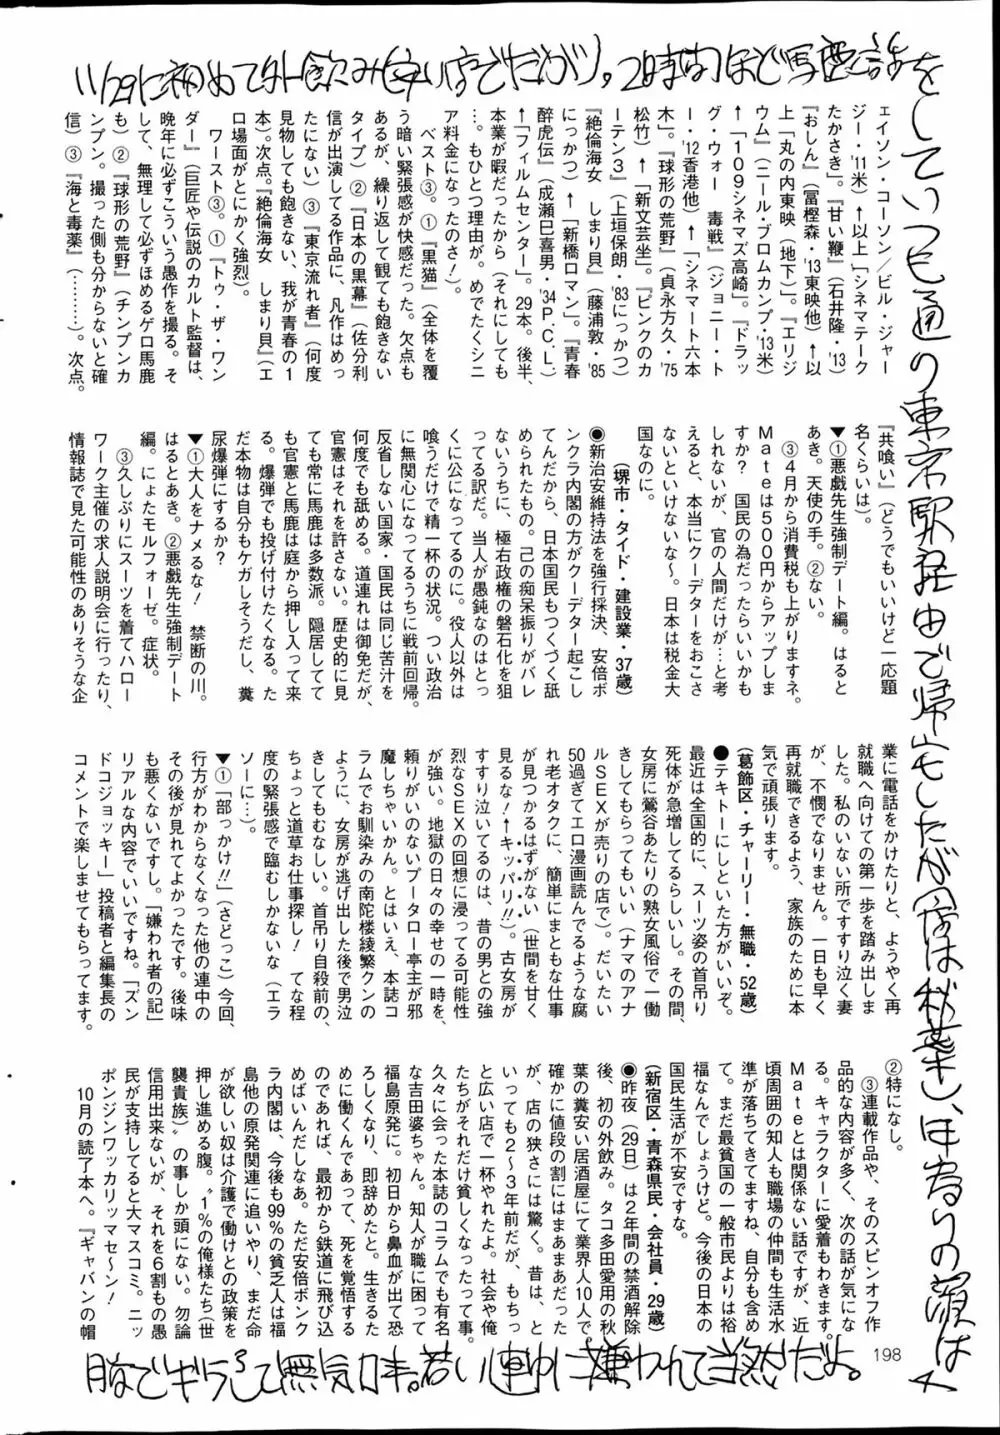 11/29に初めて外飲み(安い店でだが)。2時間ほど馬鹿話を
していつも通り東京駅経由で帰宅したが(店は秋葉)、
腹でギラって無気力。若い連中に嫌われて当然だよ。
ェイソン・コーソン/ビル・ジャー
ジー・'11米)↑以上「シネマテーク
たかさき」。『甘い鞭』(石井隆・'13)
『おしん』(冨樫森・'13東映他)↑以
上「丸の内東映(地下)」。『エリジ
ウム』(ニール・ブロムカンプ・'13米)
↑「109シネマズ高崎」。『ドラッ
グ・ウォー 毒戦』(ジョニー・ト
ー・'12香港他)↑「シネマート六本
木」。『球形の荒野』(貞永方久・'75
松竹)↑「新文芸坐」。『ピンクのカ
ーテン3』(上垣保朗・'83にっかつ)
『絶倫海女 しまり貝』(藤浦敦・'85
にっかつ)↑「新橋ロマン」。『青春
酔虎伝』(成瀬巳喜男・'34P.C.L.)
↑「フィルムセンター」。29本。後半、
本業が暇だったから(それにしても
…。もひとつ理由が。めでたくシニ
ア料金になったのさ!)。
ベスト③。①『黒猫』(全体を覆
う暗い緊張感が快感だった。欠点も
あるが、繰り返して観ても飽きない
タイプ)②『日本の黒幕』(佐分利
信が出演してる作品に、凡作はめっ
たにない)③『東京流れ者』(何度
見物しても飽きない、我が青春の1
本)。次点。『絶倫海女 しまり貝』(エ
ロ場面がとにかく強烈)。
ワースト③。①『トゥ・ザ・ワン
ダー』(巨匠や伝説のカルト監督は、
晩年に必ずこういう愚作を撮る。そ
して、無理して必ずほめるゲロ馬鹿
も)②『球形の荒野』(チンプンカ
ンプン。撮った側も分からないと確
信)③『海と毒薬』(………)。次点。
『共喰い』(どうでもいいけど一応題
名くらいは)。
▼①悪戯先生強制デート編。はると
あき。天使の手。②ない。
③4月から消費税も上がりますネ。
Mateは500円からアップしま
すか? 国民の為だったらいいかも
しれないが、官の人間だけが…と考
えると、本当にクーデターをおこさ
ないといけないな〜。日本は税金大
国なのに。
(堺市・タイド・建設業・37歳)
●新治安維持法を強行採決、安倍ボ
ンクラ内閣の方がクーデター起こし
てんだから、日本国民もつくづく舐
められたもの。己の痴呆振りがバレ
ないうちに、極右政権の磐石化を狙
ってる訳だ。当人が愚鈍なのはとっ
くに公になってるのに。役人以外は
喰うだけで精一杯の状況。つい政治
に無関心になってるうちに戦前回帰。
反省しない国家・国民は同じ苦汁を
何度でも舐める。道連れは御免だが、
官憲はそれを許さない。歴史的に見
ても常に馬鹿は多数派。隠居してて
も官憲と馬鹿は庭から押し入って来
る。爆弾でも投げ付けたくなる。た
だ本物は自分もケガしそうだし、糞
尿爆弾にするか?
▼①大人をナメるな! 禁断の川。
はるとあき。②悪戯先生強制デート
編。にょたモルフォーゼ。症状。
③久しぶりにスーツを着てハロー
ワーク主催の求人説明会に行ったり、
情報誌で見た可能性のありそうな企
業に電話をかけたりと、ようやく再
就職へ向けての第一歩を踏み出しま
した。私のいない所ですすり泣く妻
が、不憫でなりません。一日も早く
再就職できるよう、家族のために本
気で頑張ります。
(葛飾区・チャーリー・無職・52歳)
●テキトーにしといた方がいいぞ。
最近は全国的に、スーツ姿の首吊り
死体が急増してるらしいし。その間、
女房に鶯谷あたりの熟女風俗で一働
きしてもらってもいい(ナマのアナ
ルSEXが売りの店で)。だいたい
50過ぎてエロ漫画読んでるような腐
れ老オタクに、簡単にまともな仕事
が見つかるはずがない(世間を甘く
見るな!↑キッパリ!!)。古女房が
すすり泣いてるのは、昔の男との強
烈なSEXの回想に浸ってる可能性
が強い。地獄の日々の幸せの一時を、
頼りがいのないプータロー亭主が邪
魔しちゃいかん。とはいえ、本誌コ
ラムでお馴染みの南陀楼綾繁クンの
ように、女房が逃げ出した後で男泣
きしてもむなしい。首吊り自殺前の、
ちょっと道草お仕事探し! てな程
度の緊張感で臨むしかないな(エラ
ソーに…)。
▼①「部っかけ!!」(さどっこ)今回、
行方がわからなくなった他の連中の
その後が見れてよかったです。後味
も悪くないですし。「嫌われ者の記」
リアルな内容でいいですね。「ズン
ドコジョッキー」投稿者と編集長の
コメントで楽しませてもらってます。
②特になし。
③連載作品や、そのスピンオフ作
品的な内容が多く、次の話が気にな
る。キャラクターに愛着もわきます。
Mateとは関係ない話ですが、近
頃周囲の知人も職場の仲間も生活水
準が落ちてきてますね、自分も含め
て。まだ最貧国の一般市民よりは裕
福なんでしょうけど。今後の日本の
国民生活が不安ですな。
(新宿区・青森県民・会社員・29歳)
●昨夜(29日)は2年間の禁酒解除
後、初の外飲み。タコ多田愛用の秋
葉の糞安い居酒屋にて業界人10人で。
確かに値段の割にはまあまあだった
が、店の狭さには驚く。昔は、と
いっても2〜3年前だが、もちっ
と広い店で一杯やれたよ。社会や俺
たちがそれだけ貧しくなったって事。
久々に会った本誌のコラムでも有名
な吉田婆ちゃん。知人が職に困って
福島原発に。初日から鼻血が出て恐
ろしくなり、即辞めたと。生きるた
めに働くんであって、死を覚悟する
のであれば、最初から鉄道に飛び込
めばいんだしなあ。ただ安倍ボンク
ラ内閣は、今後も99%の貧乏人は福
島他の原発関連に追いやり、まだ命
が欲しい奴は介護で働けとの政策を
押し進める腹。〝1%の俺様たち(世
襲貴族)〟の事しか頭にない。勿論
信用出来ないが、それを6割もの愚
民が支持してると大マスコミ。ニッ
ポンジンワッカリマセ〜ン!
10月の読了本へ。『ギャバンの帽
198